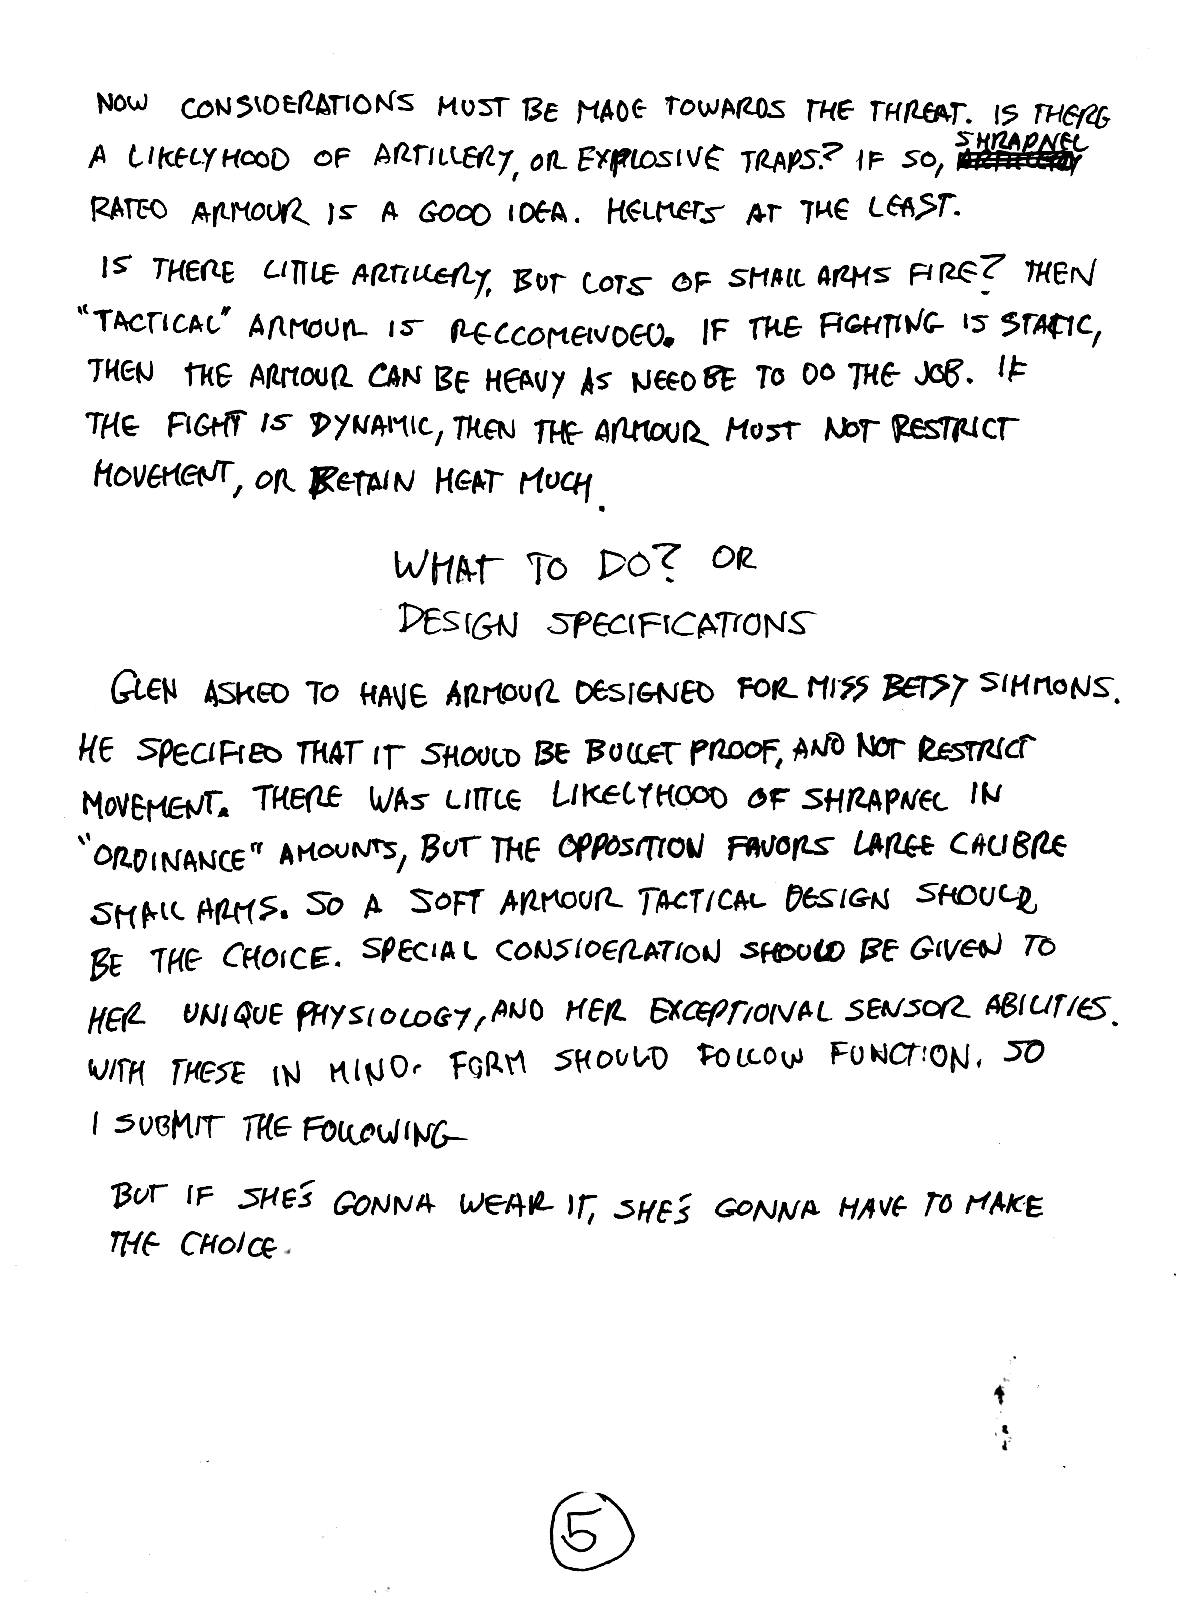 NOW CONSIDERATIONS MUST BE MADE TOWARDS THE THREAT. IS THERE
A LIKELYHOOD OF ARTILLERY, OR EXPLOSIVE TRAPS? IF SO, SHRAPNEL
RATED ARMOUR IS A GOOD IDEA. HELMETS AT THE LEAST.
IS THERE LITTLE ARTILLERY, BUT LOTS OF SMALL ARMS FIRE? THEN
"TACTICAL" ARMOUR IS RECCOMENDED. IF THE FIGHTING IS STATIC,
THEN THE ARMOUR CAN BE HEAVY AS NEED BE TO DO THE JOB. IF
THE FIGHT IS DYNAMIC, THEN THE ARMOUR MUST NOT RESTRICT
MOVEMENT, OR RETAIN HEAT MUCH.
WHAT TO DO? OR
DESIGN SPECIFICATIONS
GLEN ASKED TO HAVE ARMOUR DESIGNED FOR MISS BETSY SIMMONS.
HE SPECIFIED THAT IT SHOULD BE BULLET PROOF, AND NOT RESTRICT
MOVEMENT. THERE WAS LITTLE LIKELYHOOD OF SHRAPNEL IN
"ORDINANCE" AMOUNTS, BUT THE OPPOSITION FAVORS LARGE CALIBRE
SMALL ARMS. SO A SOFT ARMOUR TACTICAL DESIGN SHOULD
BE THE CHOICE. SPECIAL CONSIDERATION SHOULD BE GIVEN TO
HER UNIQUE PHYSIOLOGY, AND HER EXCEPTIONAL SENSOR ABILITIES.
WITH THESE IN MIND. FORM SHOULD FOLLOW FUNCTION. SO
I SUBMIT THE FOLLOWING
BUT IF SHE'S GONNA WEAR IT, SHE'S GONNA HAVE TO MAKE
THE CHOICE.
5